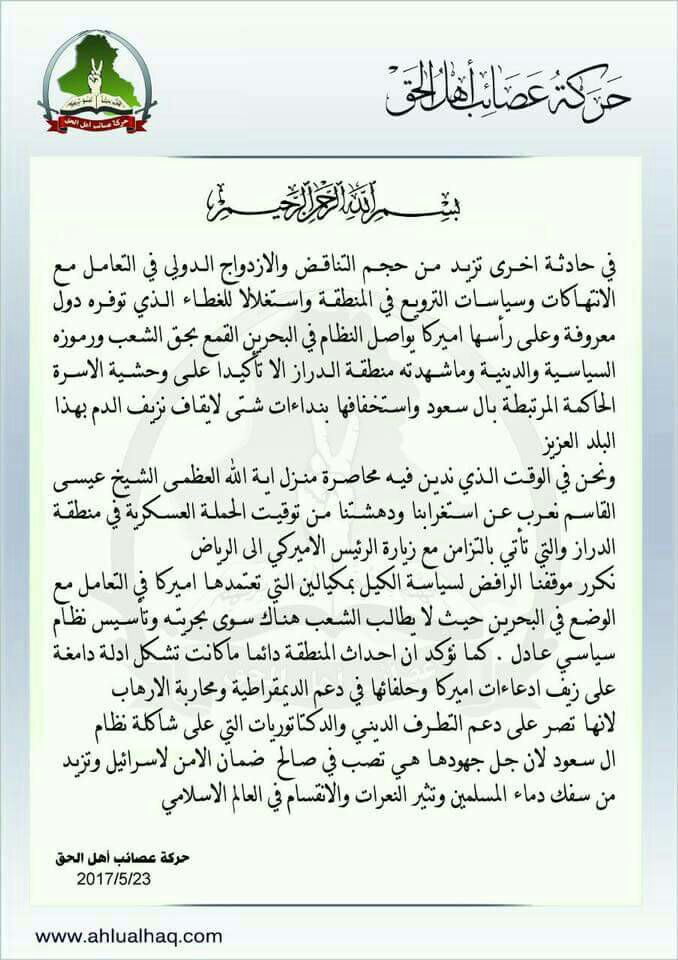 حركة عصائب أهل الحق
حركة عصائب اهل الحق
بسم الله الرحمن الرحيم
في حادثة اخرى تزيد من حجم التناقض والازدواج الدولي في التعامل مع
الانتهاكات وسياسات الترويع في المنطقة واستغلالا للغطاء الذي توفره دول
معروفة وعلى رأسها اميركا يواصل النظام في البحرين القمع بحق الشعب ورموزه
السياسية والدينية وماشهدته منطقة الدراز الا تأكيدا على وحشية الاسرة
الحاكمة المرتبطة بال سعود واستخفافها بنداءات شتى لايقاف نزيف الدم بهذا
البلد العزيز
ونحن في الوقت الذي ندين فيه محاصرة منزل اية الله العظمى الشيخ عيسى
القاسم نعرب عن استغرابنا ودهشتنا من توقيت الحملة العسكرية في منطقة
الدراز والتي تأتي بالتزامن مع زيارة الرئيس الاميركي الى الرياض
نكرر موقفنا الرافض لسياسة الكيل بمكيالين التي تعتمدها اميركا في التعامل مع
الوضع في البحرين حيث لا يطالب الشعب هناك سوى بحريته وتأسيس نظام
سياسي عادل . كما نؤكد ان احداث المنطقة دائما ماكانت تشكل ادلة دامغة
على زيف ادعاءات اميركا وحلفائها في دعم الديمقراطية ومحاربة الارهاب
لانها تصر على دعم التطرف الديني والدكتاتوريات التي على شاكلة نظام
ال سعود لان جل جهودها هي تصب في صالح ضمان الامن لاسرائيل وتزيد
من سفك دماء المسلمين وتثير النعرات والانقسام في العالم الاسلامي
حركة عصائب أهل الحق
2017/5/23
www.ahlualhaq.com